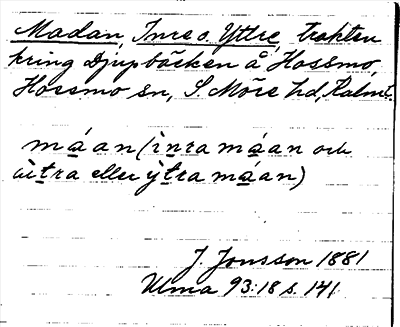 Madan, Inre o. Yttre, trakten
kring Djupbäcken å Hossmo,
Hossmo sn, S. Möre hd, Kalm.
máan (ìnra máan och
ùtra eller ỳtra máan)
J. Jonsson 1881
Ulma 93:18 s. 141.